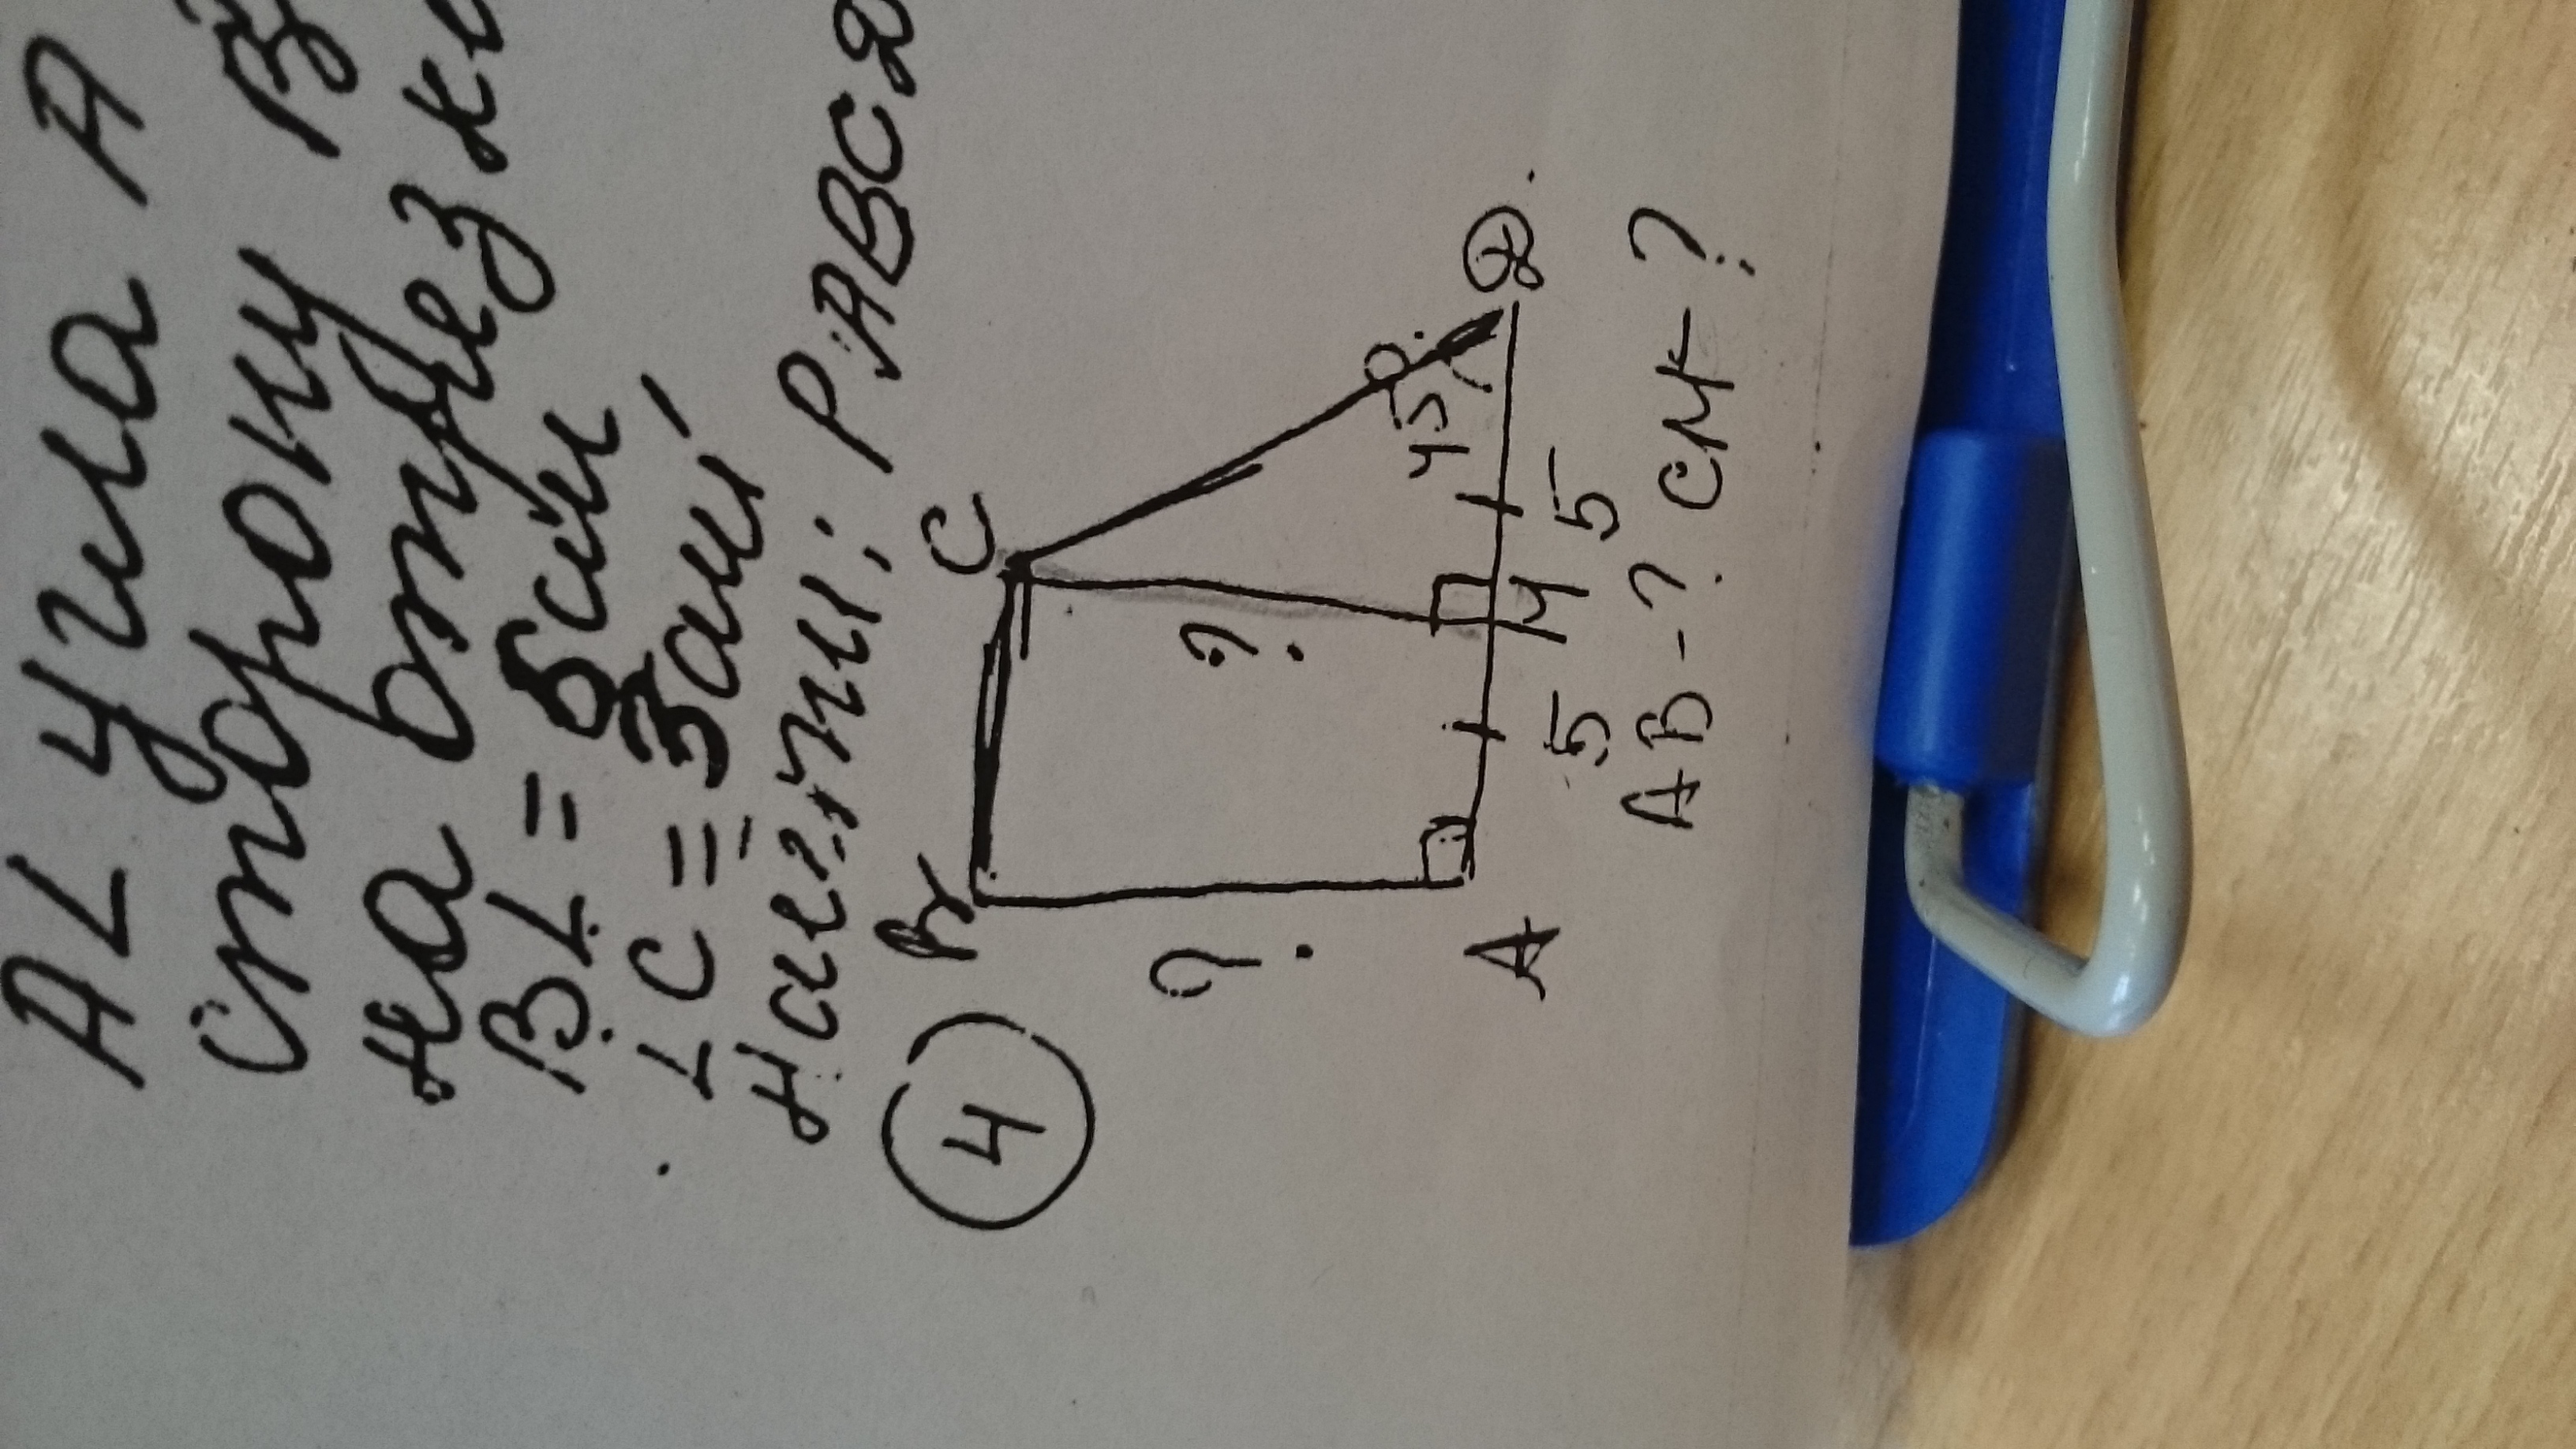 AL угла А
сторону В
на отрез
BL = 5см,
LC = 3см,
Найти: P ABCД
4
B C
? ?
45°
A М Д
5 5
AB-? СМ-?